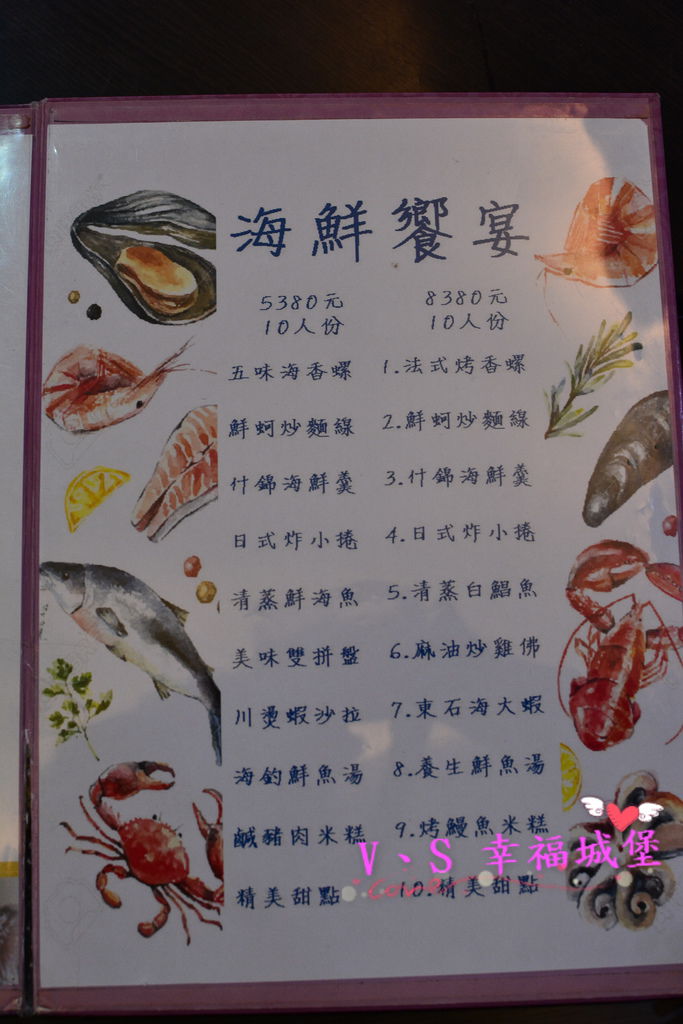 海鮮饗宴
5380元
10人份
五味海香螺
鮮蚵炒麵線
什錦海鮮羹
日式炸小捲
清蒸鮮海魚
美味雙拼盤
川燙蝦沙拉
海釣鮮魚湯
鹹豬肉米糕
精美甜點
8380元
10人份
1.法式烤香螺
2.鮮蚵炒麵線
3.什錦海鮮羹
4.日式炸小捲
5.清蒸白鯧魚
6.麻油炒雞佛
7.東石海大蝦
8.養生鮮魚湯
9.烤鰻魚米糕
10.精美甜點
V、S 幸福城堡